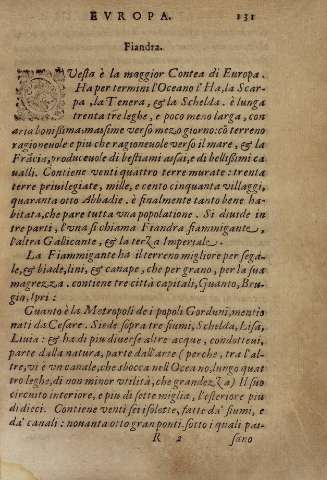 EVROPA. 131
Fiandra.
QVesta è la maggior Contea di Europa.
Ha per termini l'Oceano l'Ha, la Scar-
pa, la Tenera, & la Schelda. è lunga
trenta tre leghe, e poco meno larga, con
aria bonissima, massime verso mezo giorno: cô terreno
ragioneuole e piu che ragioneuole verso il mare, & la
Frácia, produceuole di bestiami assai, e di bellissimi ca
ualli. Contiene venti quattro terre murate: trenta
terre priuilegiate, mille, e cento cinquanta villaggi,
quaranta otto Abbadie. è finalmente tanto bene ha-
bitata, che pare tutta vna popolatione. Si diuide in
tre parti, l'vna si chiama Fiandra fiammigante,
l'altra Gallicante, & la terza Imperiale.
La Fiammigante ha il terreno migliore per sega-
le, & biade, lini, & canape, che per grano, per la sua
magrezza. contiene tre città capitali, Guanto, Bru-
gin, Ipri:
Guanto è la Metropoli de i popoli Gorduni, mentio
nati da Cesare. Siede sopra tre fiumi, Schelda, Lisa,
Liuia: & ha di piu diuerse altre acque, condotteui,
parte dalla natura, parte dall'arte (perche, tra l'al-
tre, vi è vn canale, che sbocca nell'Oceano, lungo quat
tro leghe, di non minor vtilità, che grandezza) Il suo
circuito interiore, e piu di sette miglia, l'esteriore piu
di dieci. Contiene venti sei isolotte, fatte da' fiumi, e
da' canali: nouanta otto gran ponti, sotto i quali pas-
R 2 sano